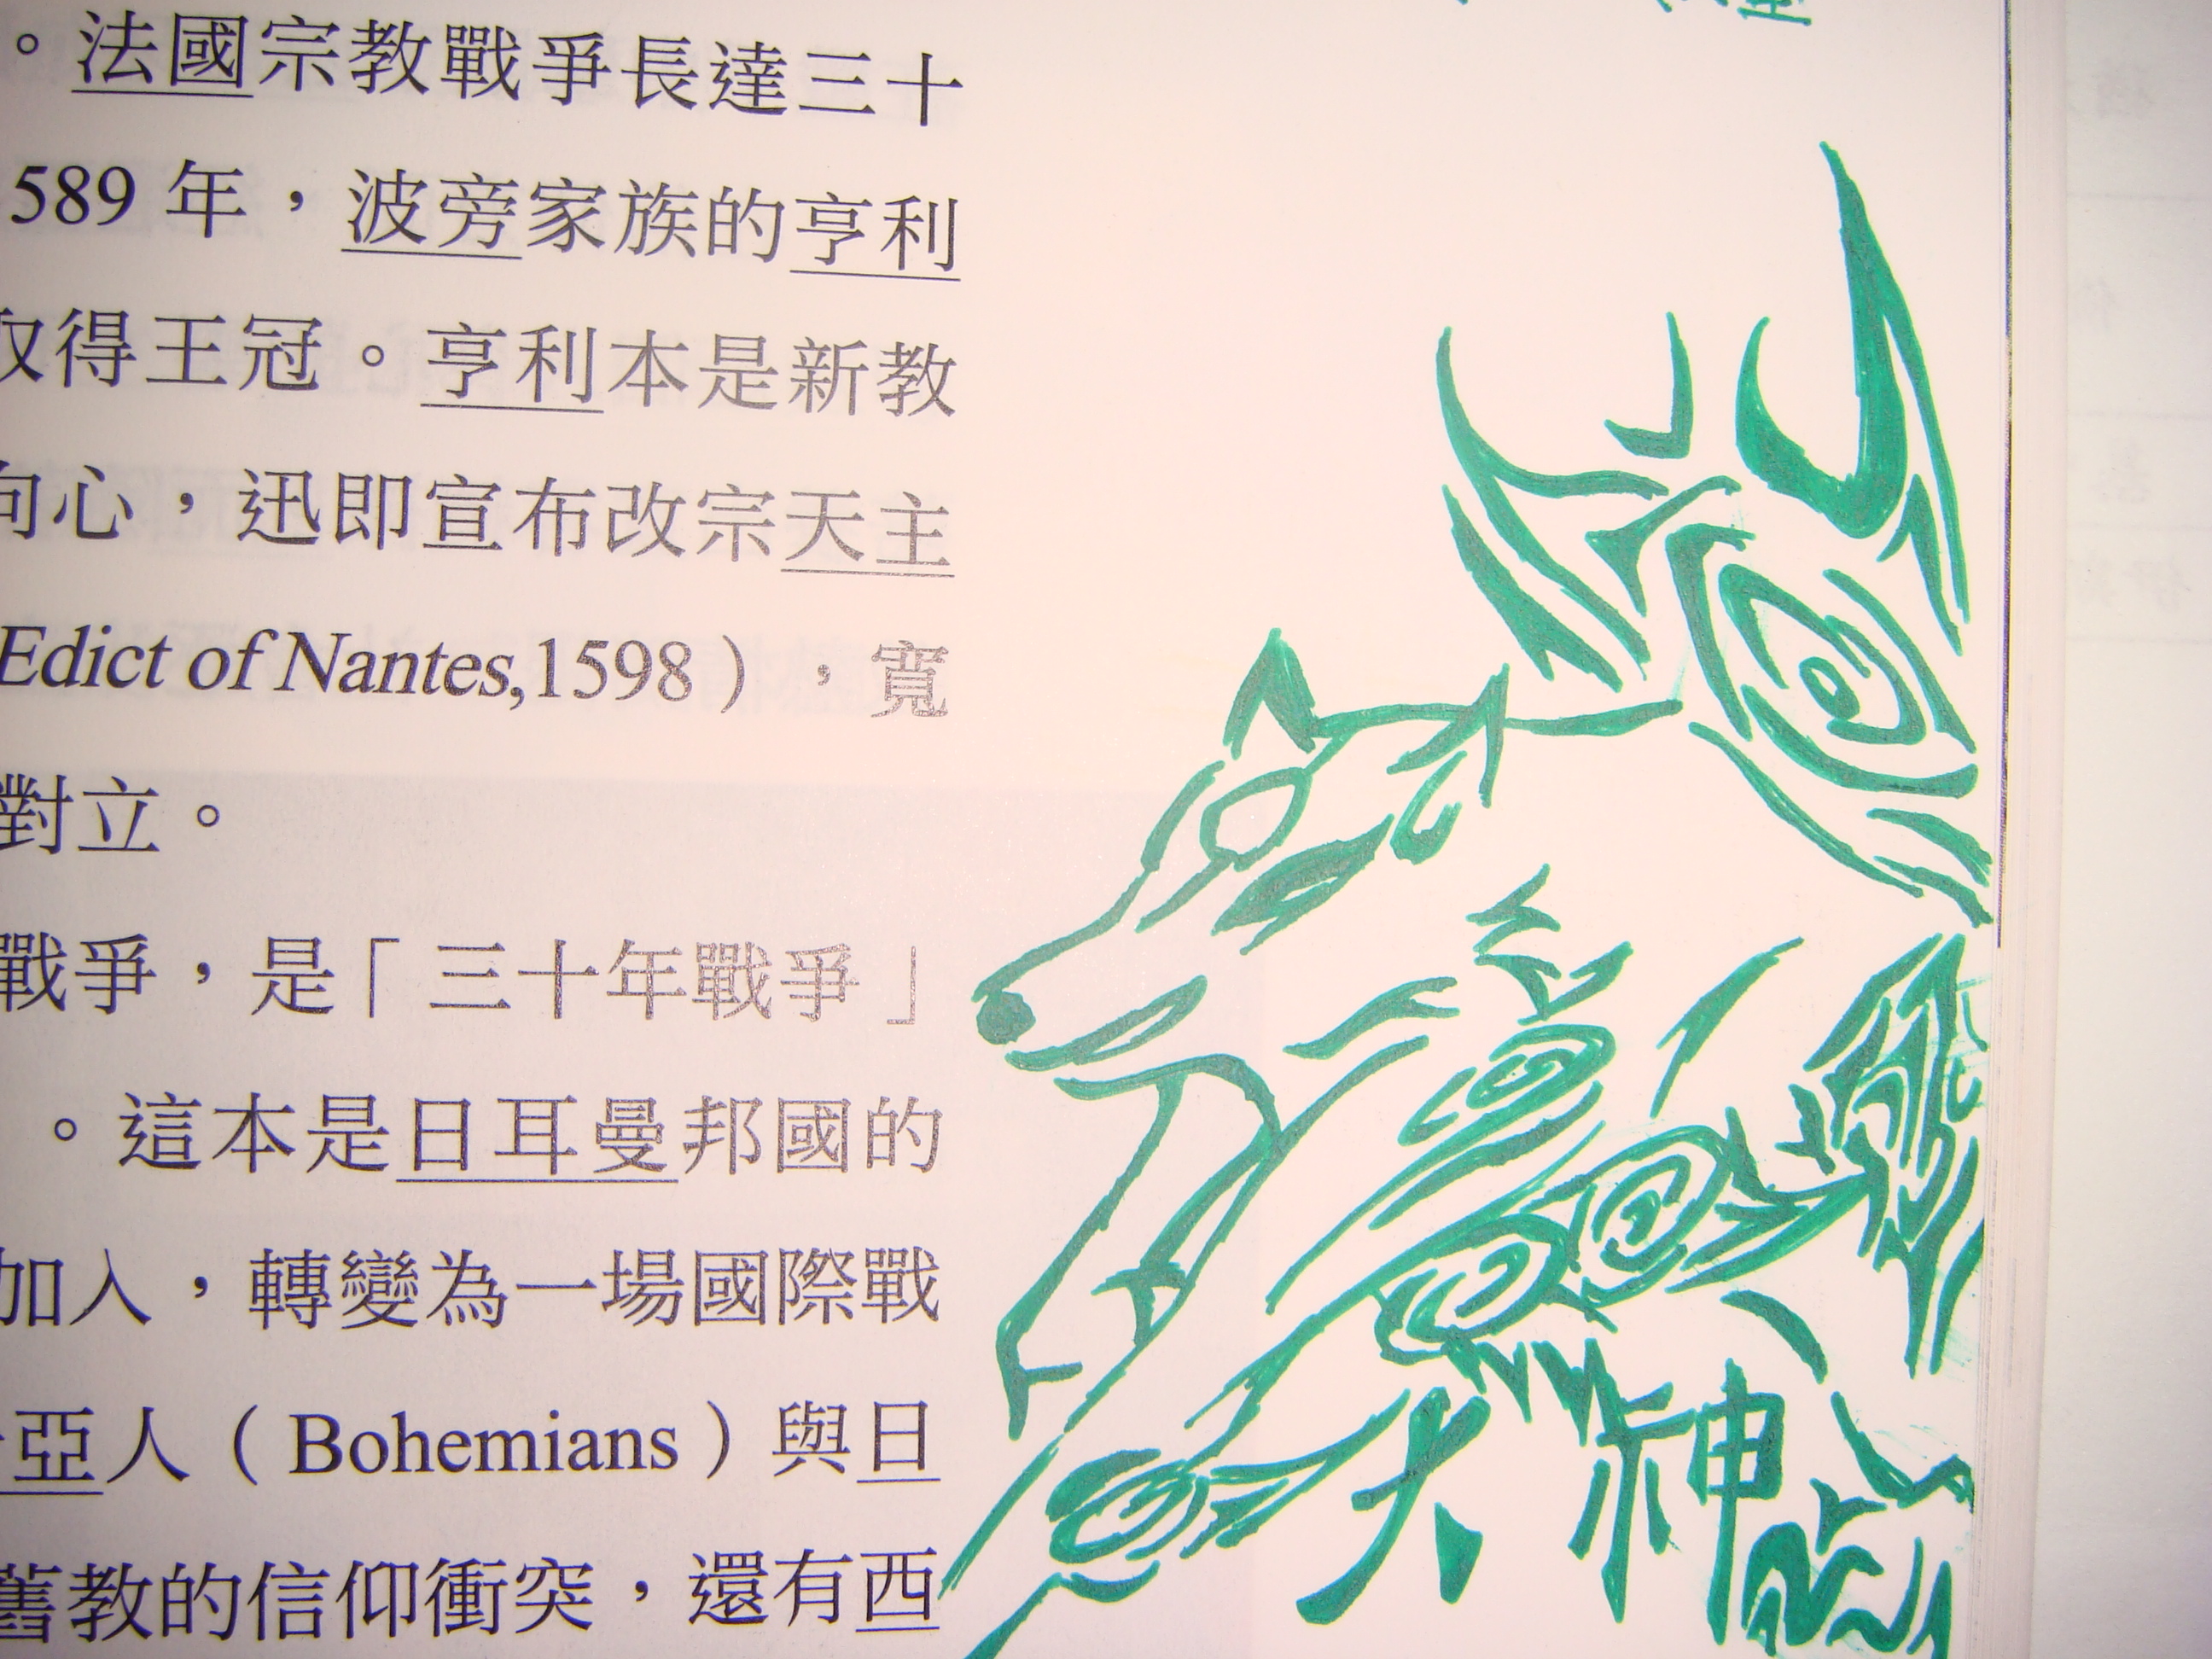 。法國宗教戰爭長達三十
589 年，波旁家族的亨利
取得王冠。亨利本是新教
向心，迅即宣布改宗天主
Edict of Nantes,1598），寬
對立。
戰爭，是「三十年戰爭」
。這本是日耳曼邦國的
加入，轉變為一場國際戰
亞人（Bohemians）與日
舊教的信仰衝突，還有西
犬神